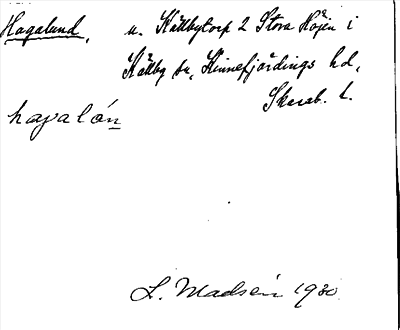 Hagalund, u. Källbytorp 2 Stora Höjen i
Källby sn, Kinnefjärdings hd,
Skarab. l.
hagalón
L. Madsén 1930